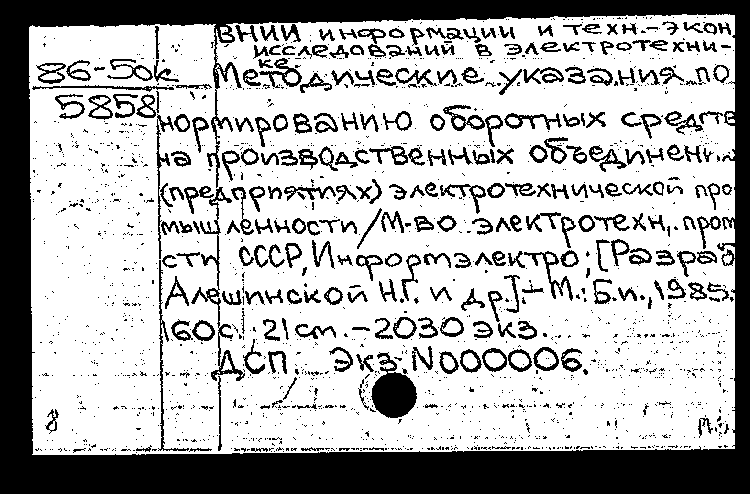 ВНИИ информации и техн.-экон.
исследований в электротехни-
ке.
86-50к Методические указания по
5858
нормированию оборотных средств
на производственных объединени
(предприятиях) электротехнической про-
мышленности / М-во электротехн. пром
сти СССР, Информэлектро; [Разраб
Алешинской Н.Г. и др.].-М.: Б.и., 1985.
160с.; 21 см. - 2030 экз.
ДСП. Экз. N000006.
8